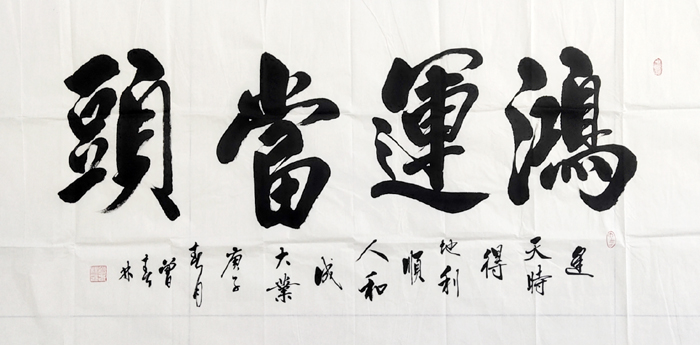 鴻運當頭
逢天時得地利順人和成大業庚子春月曾春林